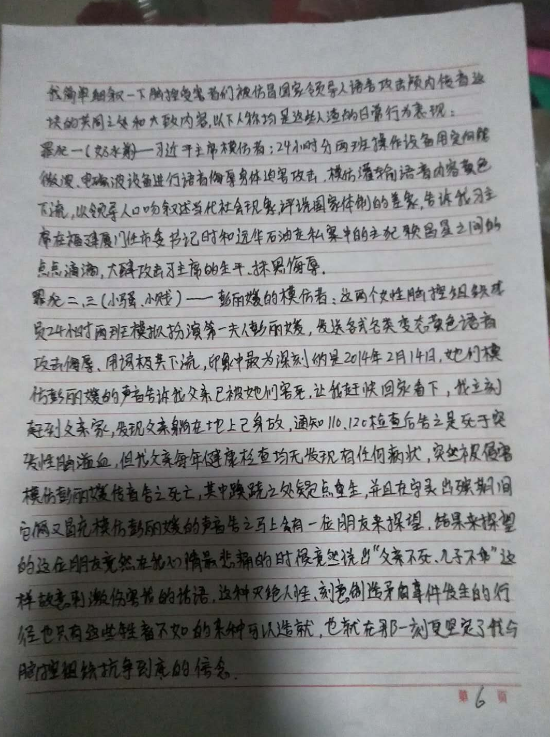 我简单细叙一下脑控受害者们被仿冒国家领导人语音攻击颅内传音这
块的共同之处和大致内容,以下人称均是这些人渣的日常行为表现:
罪犯一()——习近平主席模仿者:24小时分两班操作设备用定向能
微波、电磁波设备进行语音侮辱身体迫害攻击,模仿灌输语音内容黄色
下流,以领导人口吻叙述当代社会现象,评说国家体制的差异,告诉我习主
席在福建厦门任市委书记时和远华石油走私案中的主犯赖昌星之间的
点点滴滴,大肆攻击习主席的生平、抹黑侮辱。
罪犯二、三(小强、小贱)——彭丽媛的模仿者:这两个女性脑控组织成
员24小时两班模拟扮演第一夫人彭丽媛,发送各式各类变态黄色语音
攻击侮辱、用词极其下流,印象中最为深刻的是2014年2月14日,她们模
仿彭丽媛的声音告诉我父亲已被她们害死,让我赶快回家看下,我立刻
赶到父亲家,发现父亲躺在地上已身故,通知110、120检查后告之是死于突
发性脑溢血,但我父亲每年健康检查均无发现有任何病状,突然被侵害
模仿彭丽媛传音告之死亡,其中蹊跷之处疑点重生,并且在守灵出殡期间
它俩又冒充模仿彭丽媛的声音告之马上会有一位朋友来探望,结果来探望
的这位朋友竟然在我心情最悲痛的时候竟然说出“父亲不死、儿子不华”这
样故意刺激伤害我的话语,这种灭绝人性、刻意创造矛盾事件发生的行
径也只有这些牲畜不如的杂种可以造就,也就在那一刻更坚定了我与
脑控组织抗争到底的信念。
第6页